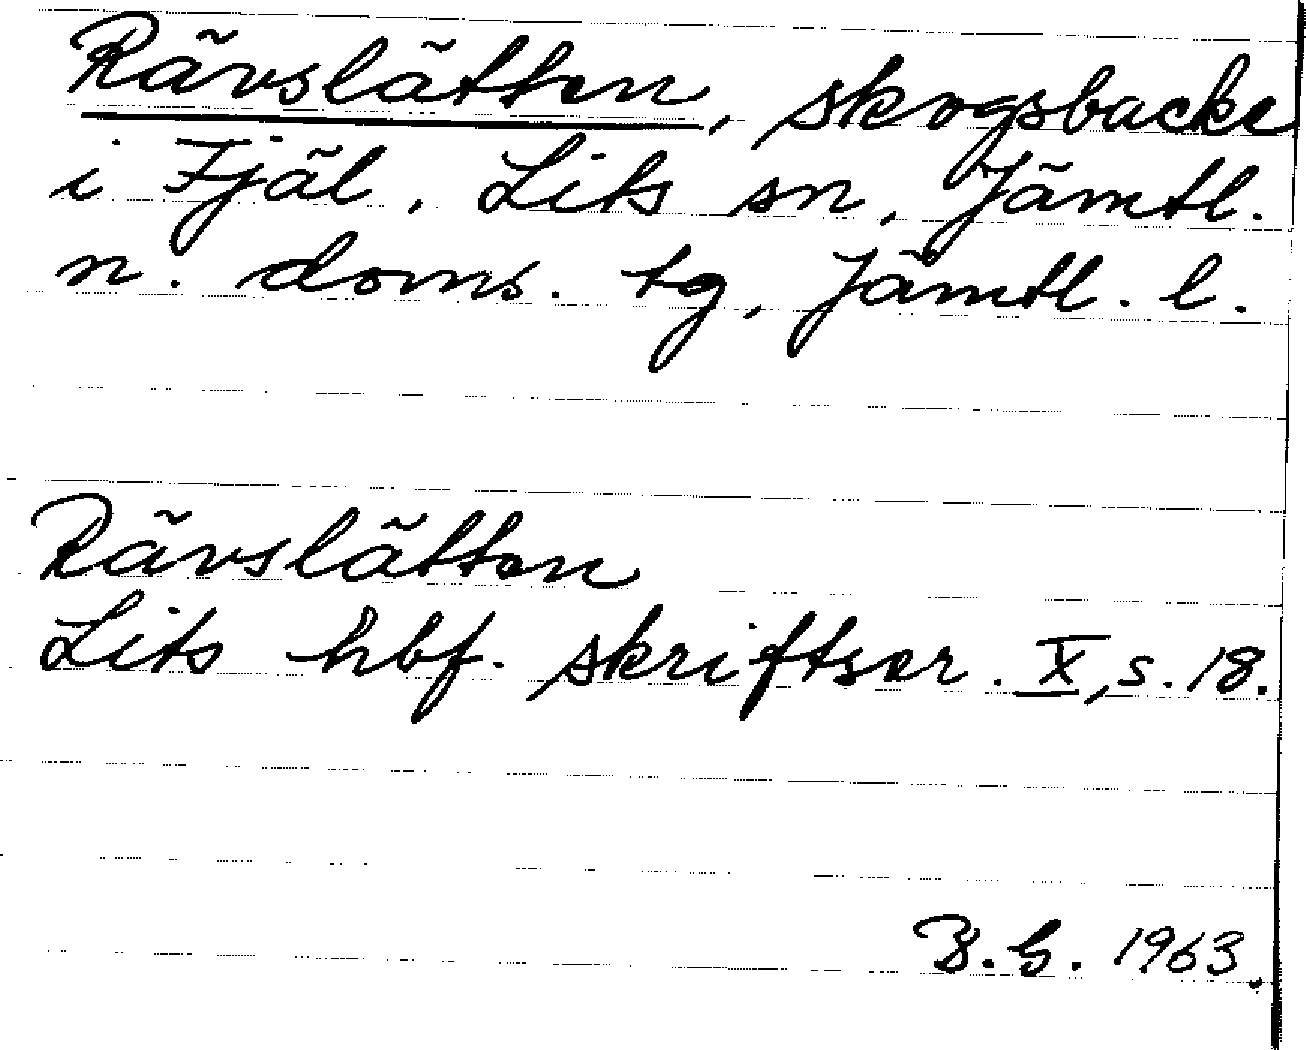 Rävslätten, skogsbacke
i Fjäl, Lits sn, Jämtl.
n. doms. tg, Jämtl. l.
Rävslätten
Lits hbf. skriftser. X, s. 18.
B.G. 1963.